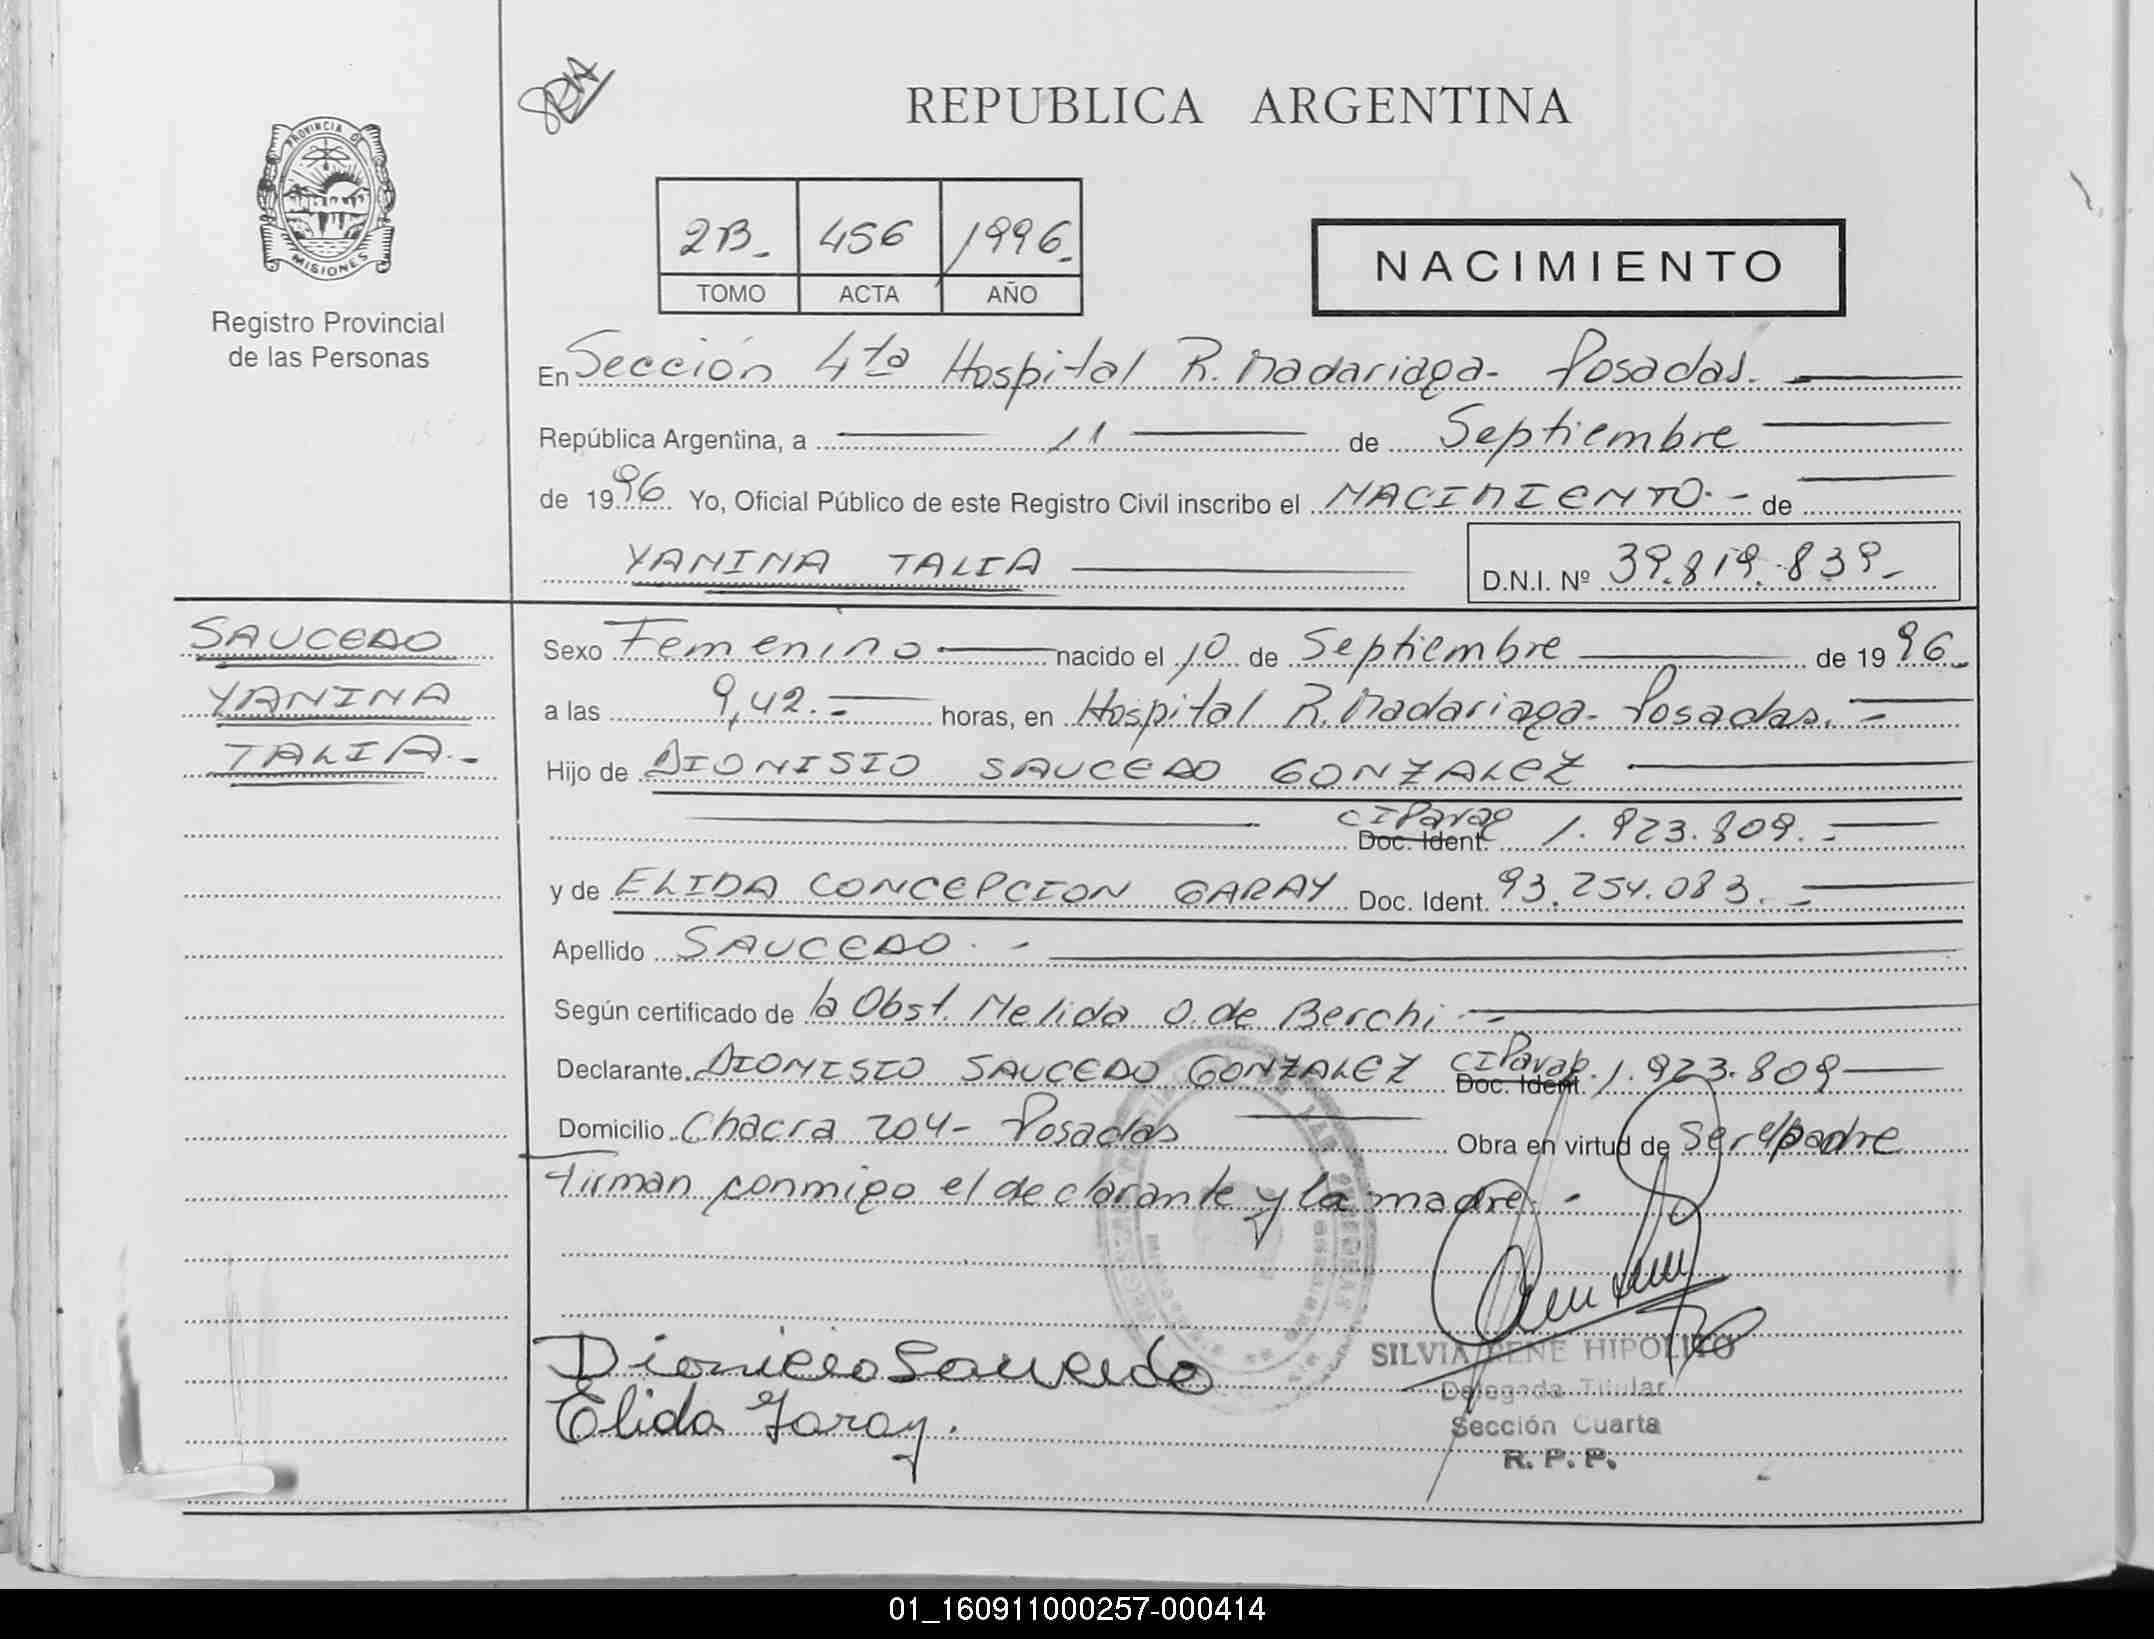 REPUBLICA ARGENTINA
PROVINCIA DE MISIONES
Registro Provincial
de las Personas
2B- 456 1996-
TOMO ACTA AÑO
NACIMIENTO
En Sección 4ta Hospital R. Madariaga- Posadas.
República Argentina, a 11 de Septiembre
de 1996 Yo, Oficial Público de este Registro Civil inscribo el NACIMIENTO.- de
YANINA TALIA D.N.I. Nº 39.819.839-
SAUCEDO
YANINA
TALIA.-
Sexo Femenino nacido el 10 de Septiembre de 1996-
a las 9,42.- horas, en Hospital R. Madariaga- Posadas.-
Hijo de DIONISIO SAUCEDO GONZALEZ
CI Parag Doc. Ident. 1.923.809.-
y de ELIDA CONCEPCION GARAY Doc. Ident. 93.254.083.-
Apellido SAUCEDO.-
Según certificado de la Obst. Nelida O. de Berchi.-
Declarante DIONISIO SAUCEDO GONZALEZ CI Parag. Doc. Ident. 1.923.809
Domicilio Chacra 204- Posadas Obra en virtud de Ser el padre
Firman conmigo el declarante y la madre.-
Dionicio Saucedo
Elida Garay.
SILVIA IRENE HIPOLITO
Delegada Titular
Sección Cuarta
R. P. P.
01_160911000257-000414